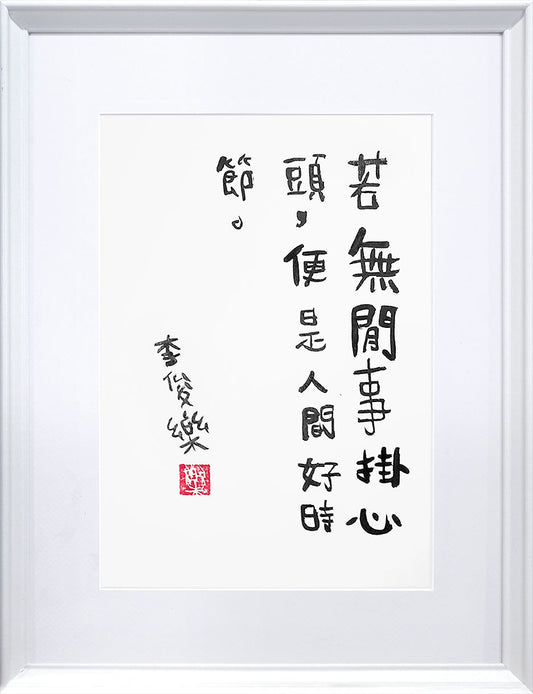 若無閒事掛心
頭，便是人間好時
節。
李俊樂
樂